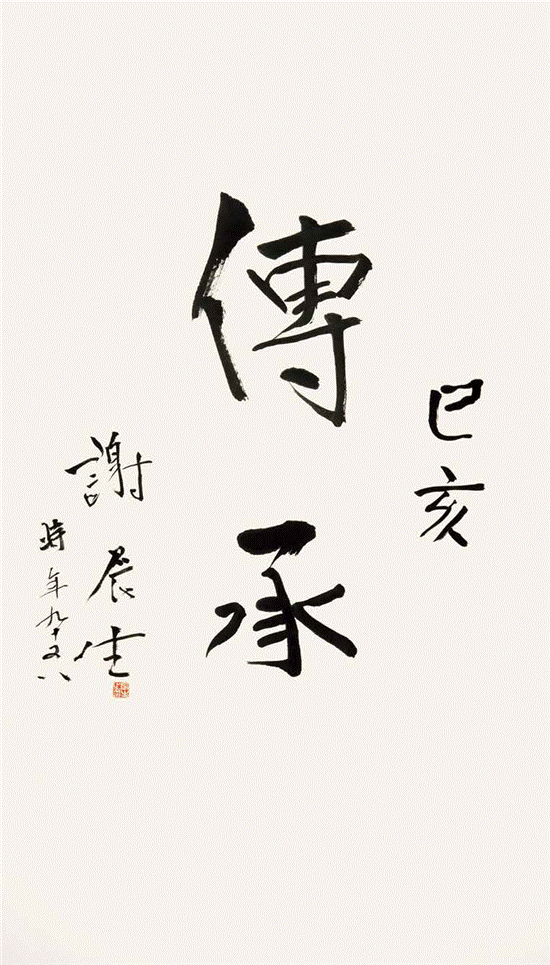 己亥
傳承
謝辰生
時年九十又八